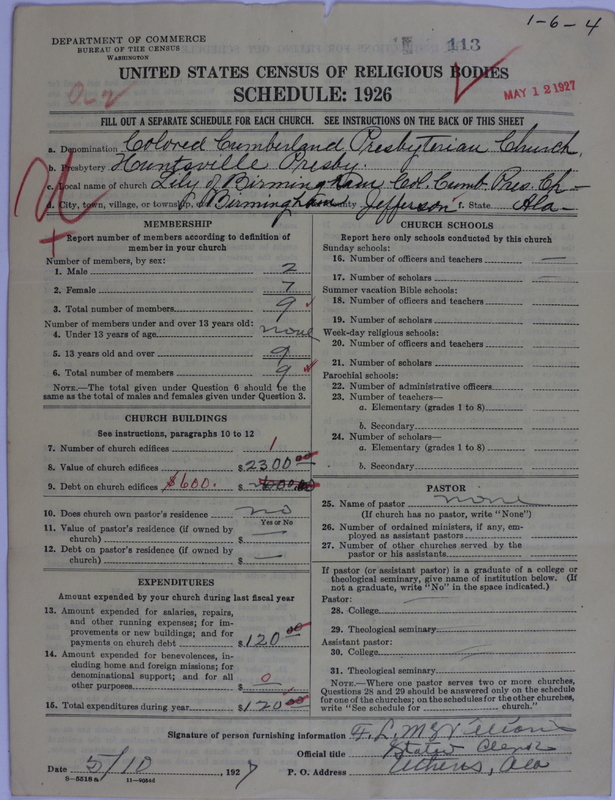 1-6-4
DEPARTMENT OF COMMERCE
BUREAU OF THE CENSUS
WASHINGTON
113
UNITED STATES CENSUS OF RELIGIOUS BODIES
SCHEDULE: 1926
MAY 12 1927
FILL OUT A SEPARATE SCHEDULE FOR EACH CHURCH. SEE INSTRUCTIONS ON THE BACK OF THIS SHEET
a. Denomination Colored Cumberland Presbyterian Church,
b. Presbytery Huntsville Presby.
c. Local name of church Lily of Birmingham Col. Cumb. Pres. Ch-
d. City, town, village, or township, Birmingham County Jefferson f. State Ala-
MEMBERSHIP
Report number of members according to definition of
member in your church
Number of members, by sex:
1. Male 2
2. Female 7
3. Total number of members 9
Number of members under and over 13 years old:
4. Under 13 years of age none
5. 13 years old and over 9
6. Total number of members 9
NOTE.—The total given under Question 6 should be the
same as the total of males and females given under Question 3.
CHURCH BUILDINGS
See instructions, paragraphs 10 to 12
7. Number of church edifices 1
8. Value of church edifices $ 2300 00
9. Debt on church edifices $600. $
10. Does church own pastor's residence no
Yes or No
11. Value of pastor's residence (if owned by
church) $ —
12. Debt on pastor's residence (if owned by
church) $ —
EXPENDITURES
Amount expended by your church during last fiscal year
13. Amount expended for salaries, repairs,
and other running expenses; for im-
provements or new buildings; and for
payments on church debt $ 120 00
14. Amount expended for benevolences, in-
cluding home and foreign missions; for
denominational support; and for all
other purposes $ 0
15. Total expenditures during year $ 120 00
CHURCH SCHOOLS
Report here only schools conducted by this church
Sunday schools:
16. Number of officers and teachers —
17. Number of scholars —
Summer vacation Bible schools:
18. Number of officers and teachers
19. Number of scholars
Week-day religious schools:
20. Number of officers and teachers
21. Number of scholars
Parochial schools:
22. Number of administrative officers
23. Number of teachers—
a. Elementary (grades 1 to 8)
b. Secondary
24. Number of scholars—
a. Elementary (grades 1 to 8)
b. Secondary
PASTOR
25. Name of pastor none
(If church has no pastor, write "None")
26. Number of ordained ministers, if any, em-
ployed as assistant pastors
27. Number of other churches served by the
pastor or his assistants
If pastor (or assistant pastor) is a graduate of a college or
theological seminary, give name of institution below. (If
not a graduate, write "No" in the space indicated.)
Pastor:
28. College
29. Theological seminary
Assistant pastor:
30. College
31. Theological seminary
NOTE.—Where one pastor serves two or more churches,
Questions 28 and 29 should be answered only on the schedule
for one of the churches; on the schedules for the other churches,
write "See schedule for church."
Signature of person furnishing information F. L.
Official title Stated Clerk
Date 5/10, 1927 P. O. Address Athens, Ala